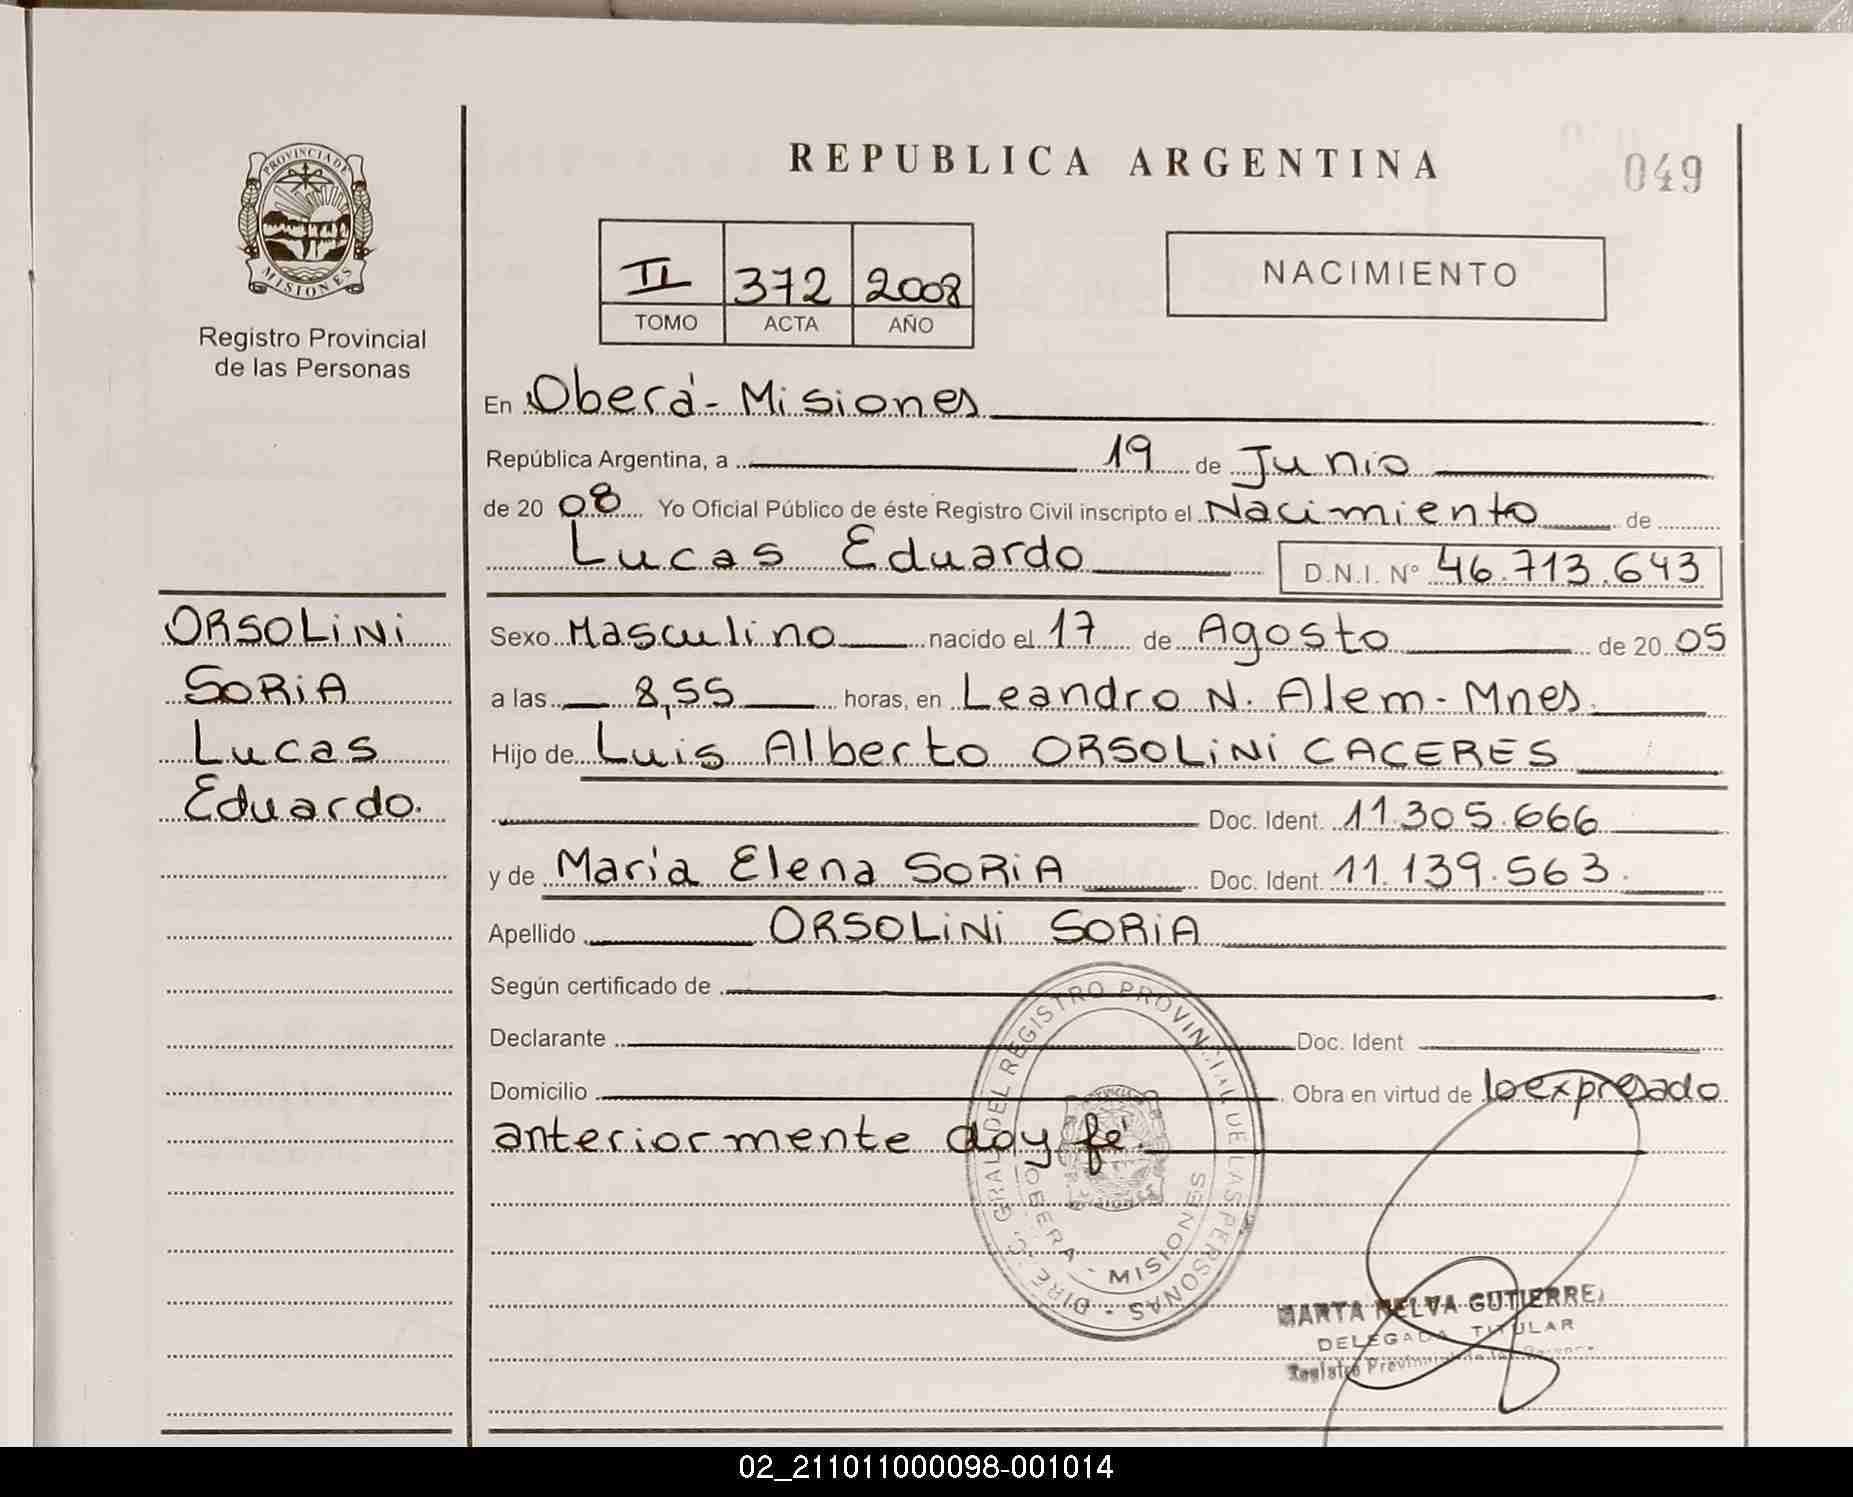 REPUBLICA ARGENTINA
049
PROVINCIA DE
MISIONES
Registro Provincial
de las Personas
II 372 2008
TOMO ACTA AÑO
NACIMIENTO
En Oberá - Misiones
República Argentina, a 19 de Junio
de 20 08 Yo Oficial Público de éste Registro Civil inscripto el Nacimiento de
Lucas Eduardo D.N.I. Nº 46.713.643
ORSOLINI
SORIA
Lucas
Eduardo.
Sexo Masculino nacido el 17 de Agosto de 20 05
a las 8,55 horas, en Leandro N. Alem - Mnes.
Hijo de Luis Alberto ORSOLINI CACERES
Doc. Ident. 11.305.666
y de María Elena SORIA Doc. Ident. 11.139.563.
Apellido ORSOLINI SORIA
Según certificado de
Declarante Doc. Ident
Domicilio Obra en virtud de lo expresado
anteriormente doy fé.
DIREC. GRAL. DEL REGISTRO PROVINCIAL DE LAS PERSONAS
OBERA - MISIONES
MARTA NELVA GUTIERRE
DELEGADA TITULAR
Registro Provincial de las
02_211011000098-001014